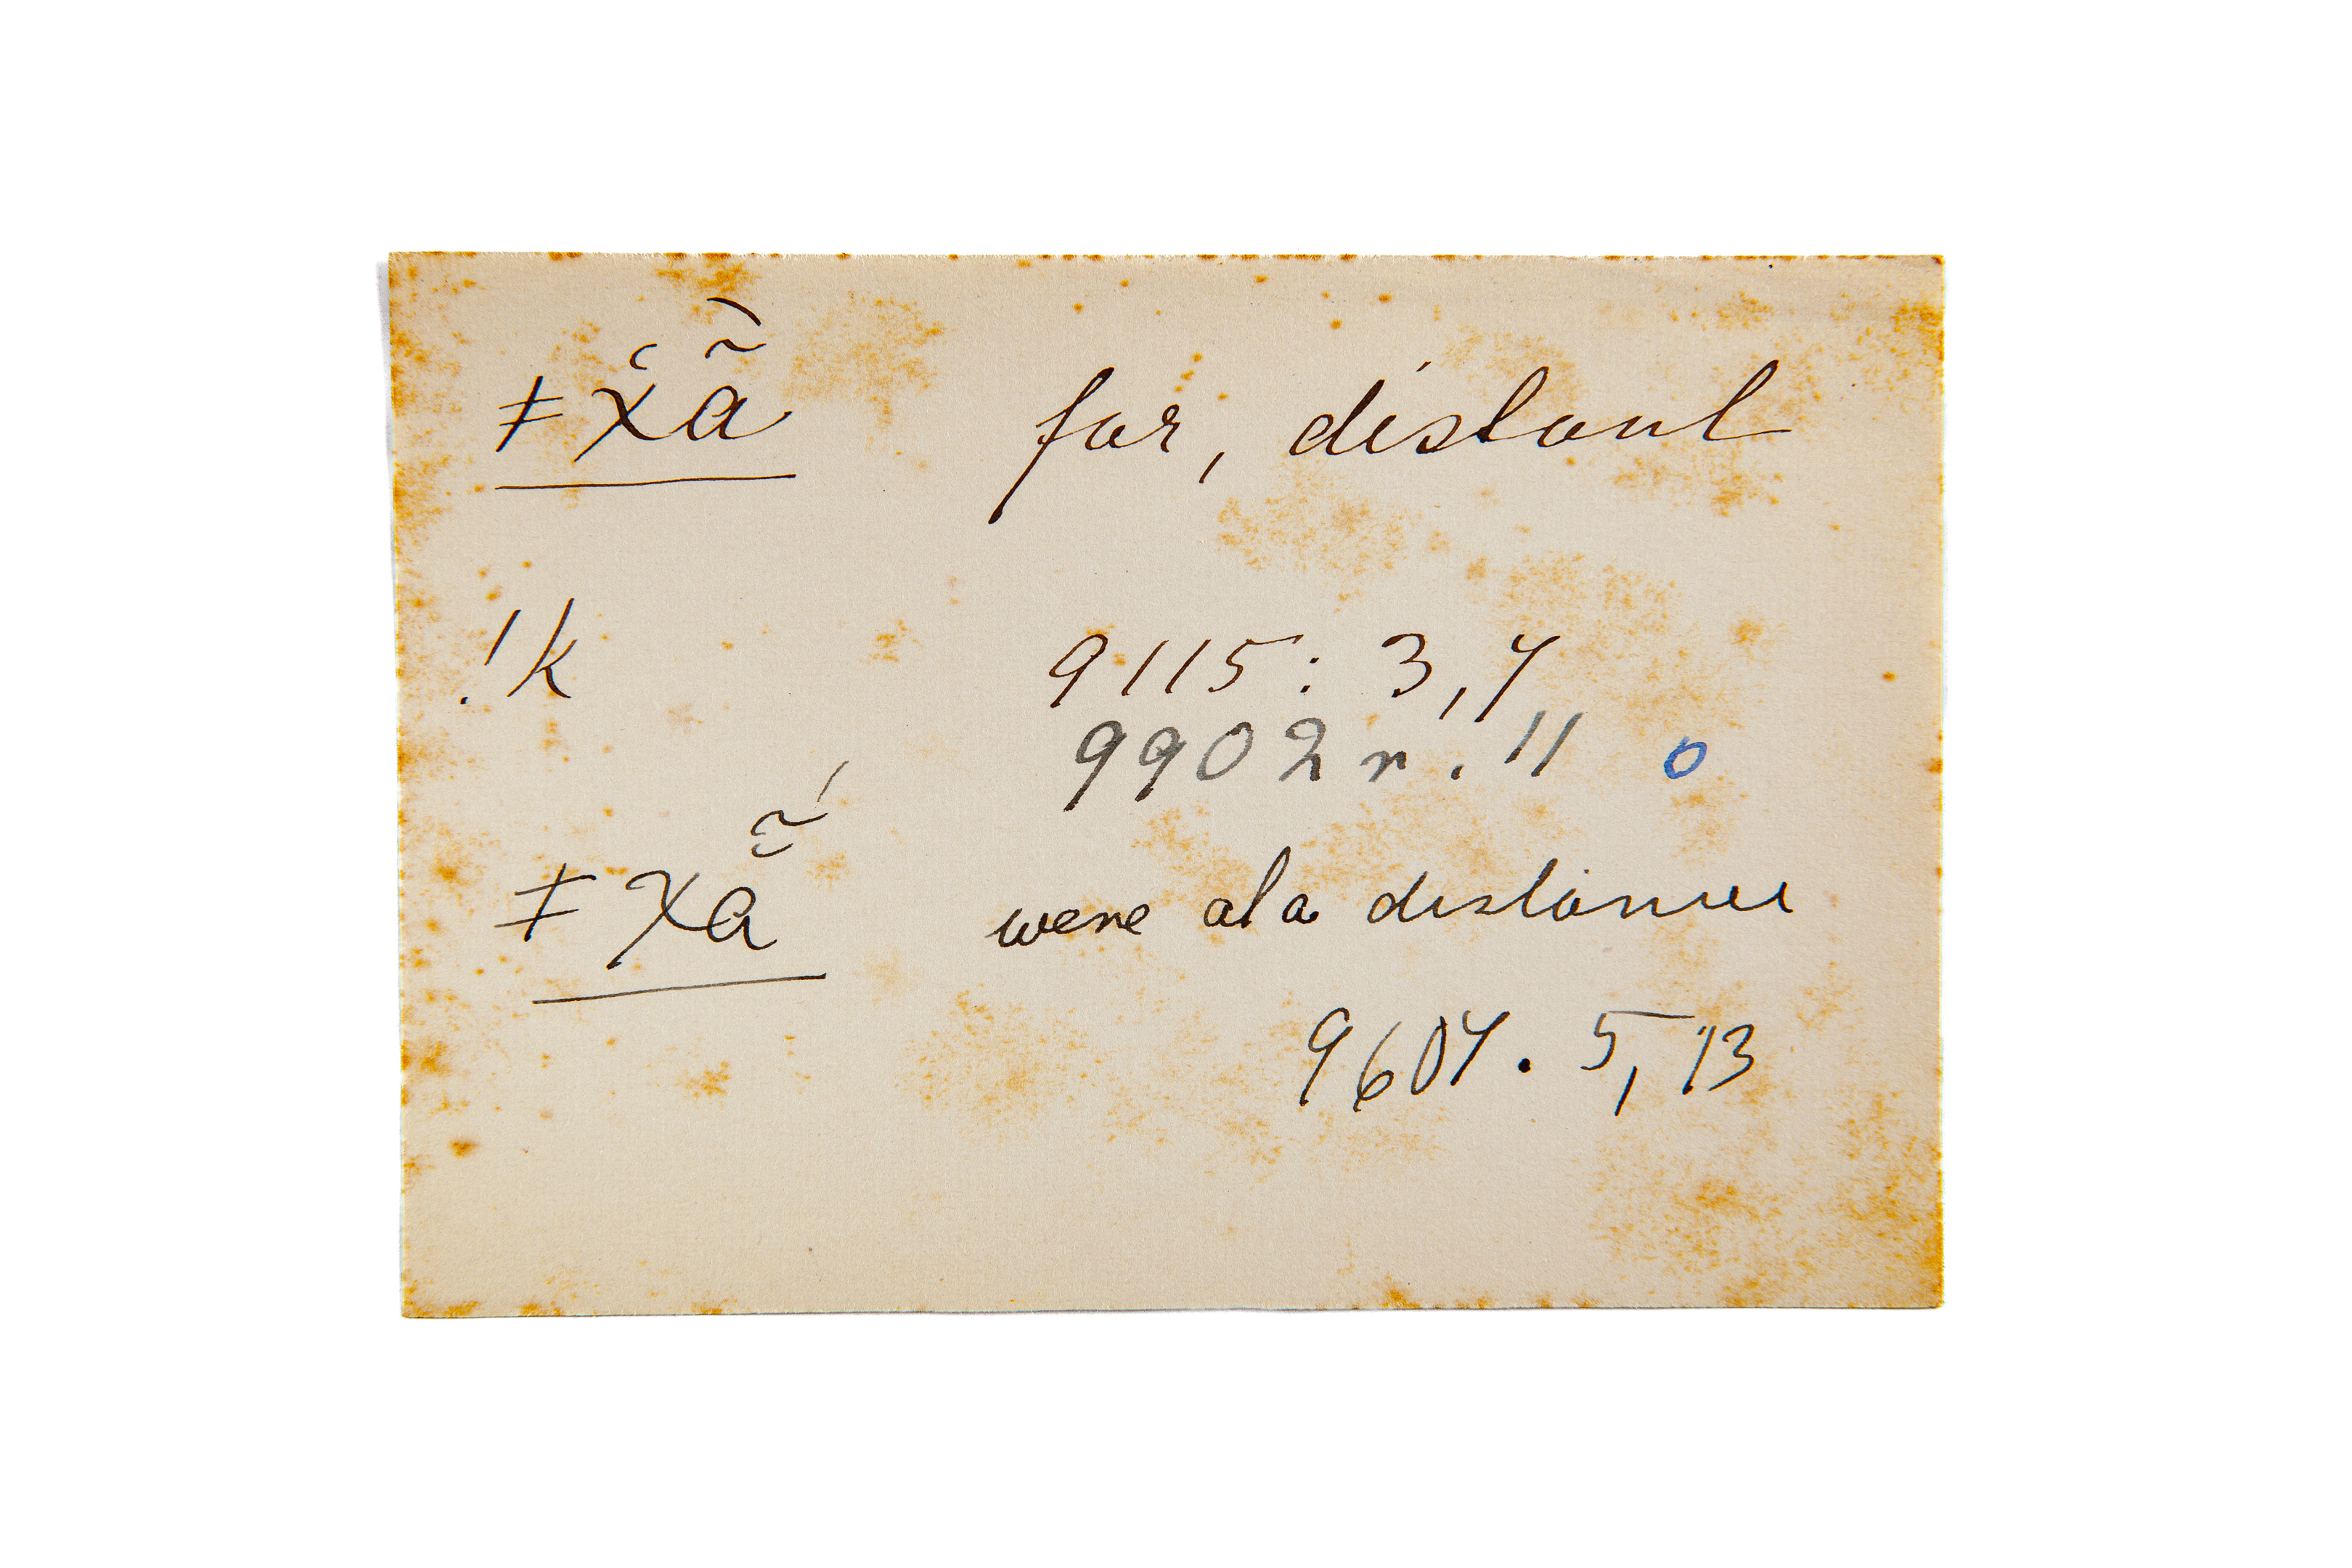 ǂx̔ã̀ far, distant
!k 9115: 3, 4
9902 r. 11 o
ǂxã̆́ were at a distance
9604. 5, 13